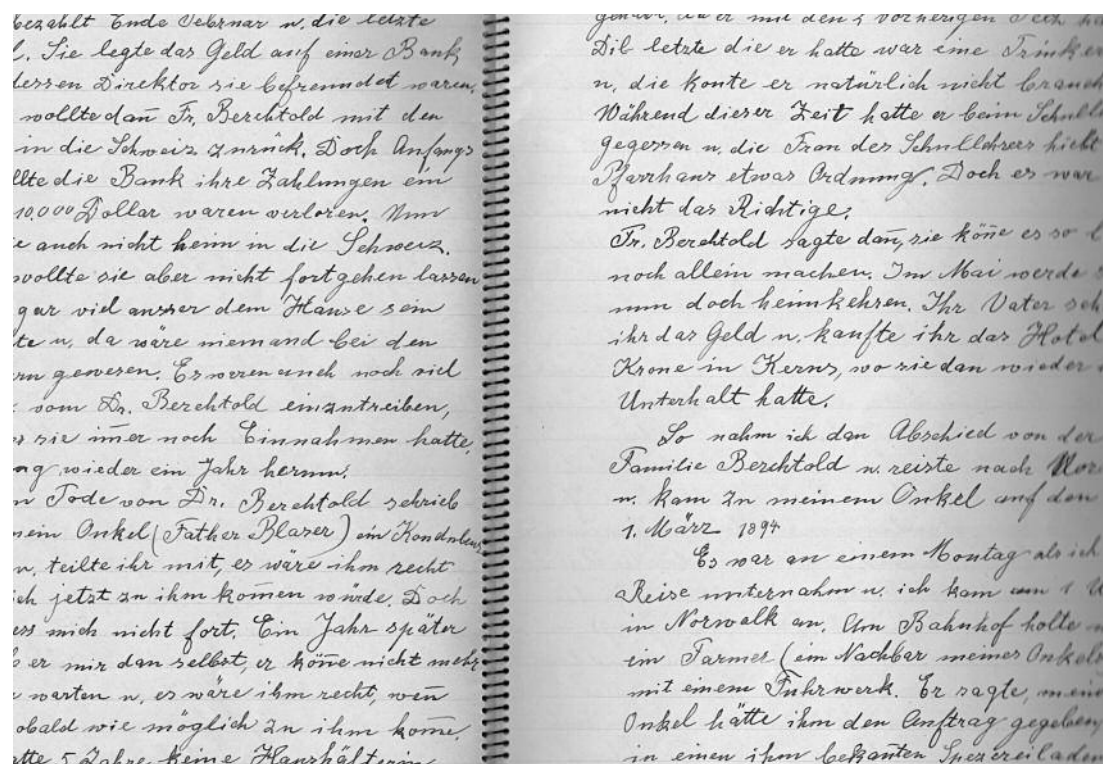 bezahlt Ende Februar u. die letzte
Sie legte das Geld auf einer Bank
dessen Direktor sie befreundet waren.
wollte dan̄ Fr. Berchtold mit den
in die Schweiz zurück. Doch Anfangs
llte die Bank ihre Zahlungen ein
10,000 Dollar waren verloren. Nun
auch nicht heim in die Schweiz.
wollte sie aber nicht fortgehen lassen
gar viel ausser dem Hause sein
te u. da wäre niemand bei den
rn gewesen. Es waren auch noch viel
vom Dr. Berchtold einzutreiben,
sie im̄er noch Einnahmen hatte,
ng wieder ein Jahr herum.
Tode von Dr. Berchtold schrieb
mein Onkel (Father Blaser) ein Kondulenz
u. teilte ihr mit, es wäre ihm recht
ich jetzt zu ihm kom̄en würde. Doch
ess mich nicht fort. Ein Jahr später
b er mir dan selbst, er kön̄e nicht mehr
warten u. es wäre ihm recht, wen̄
sobald wie möglich zu ihm kom̄e.
atte 5 Jahre keine Haushälterin
gehabt, da er mit den 2 vorherigen Pech
Die letzte die er hatte war eine Trinker
u. die konte er natürlich nicht brauch
Während dieser Zeit hatte er beim Schull
gegessen u. die Frau des Schullehrers hielt
Pfarrhaus etwas Ordnung. Doch es war
nicht das Richtige.
Fr. Berchtold sagte dan̄, sie kön̄e es so
noch allein machen. Im Mai werde s
nun doch heimkehren. Ihr Vater sch
ihr das Geld u. kaufte ihr das Hotel
Krone in Kerns, wo sie dan wieder
Unterhalt hatte.
So nahm ich dan Abschied von der
Familie Berchtold u. reiste nach Nor
u. kam zu meinem Onkel auf den
1. März 1894
Es war an einem Montag als ich
Reise unternahm u. ich kam um 1 U
in Norwalk an. Am Bahnhof holte
ein Farmer (ein Nachbar meines Onkels
mit einem Fuhrwerk. Er sagte, mein
Onkel hätte ihm den Auftrag gegeben,
in einen ihm bekan̄ten Spezereiladen